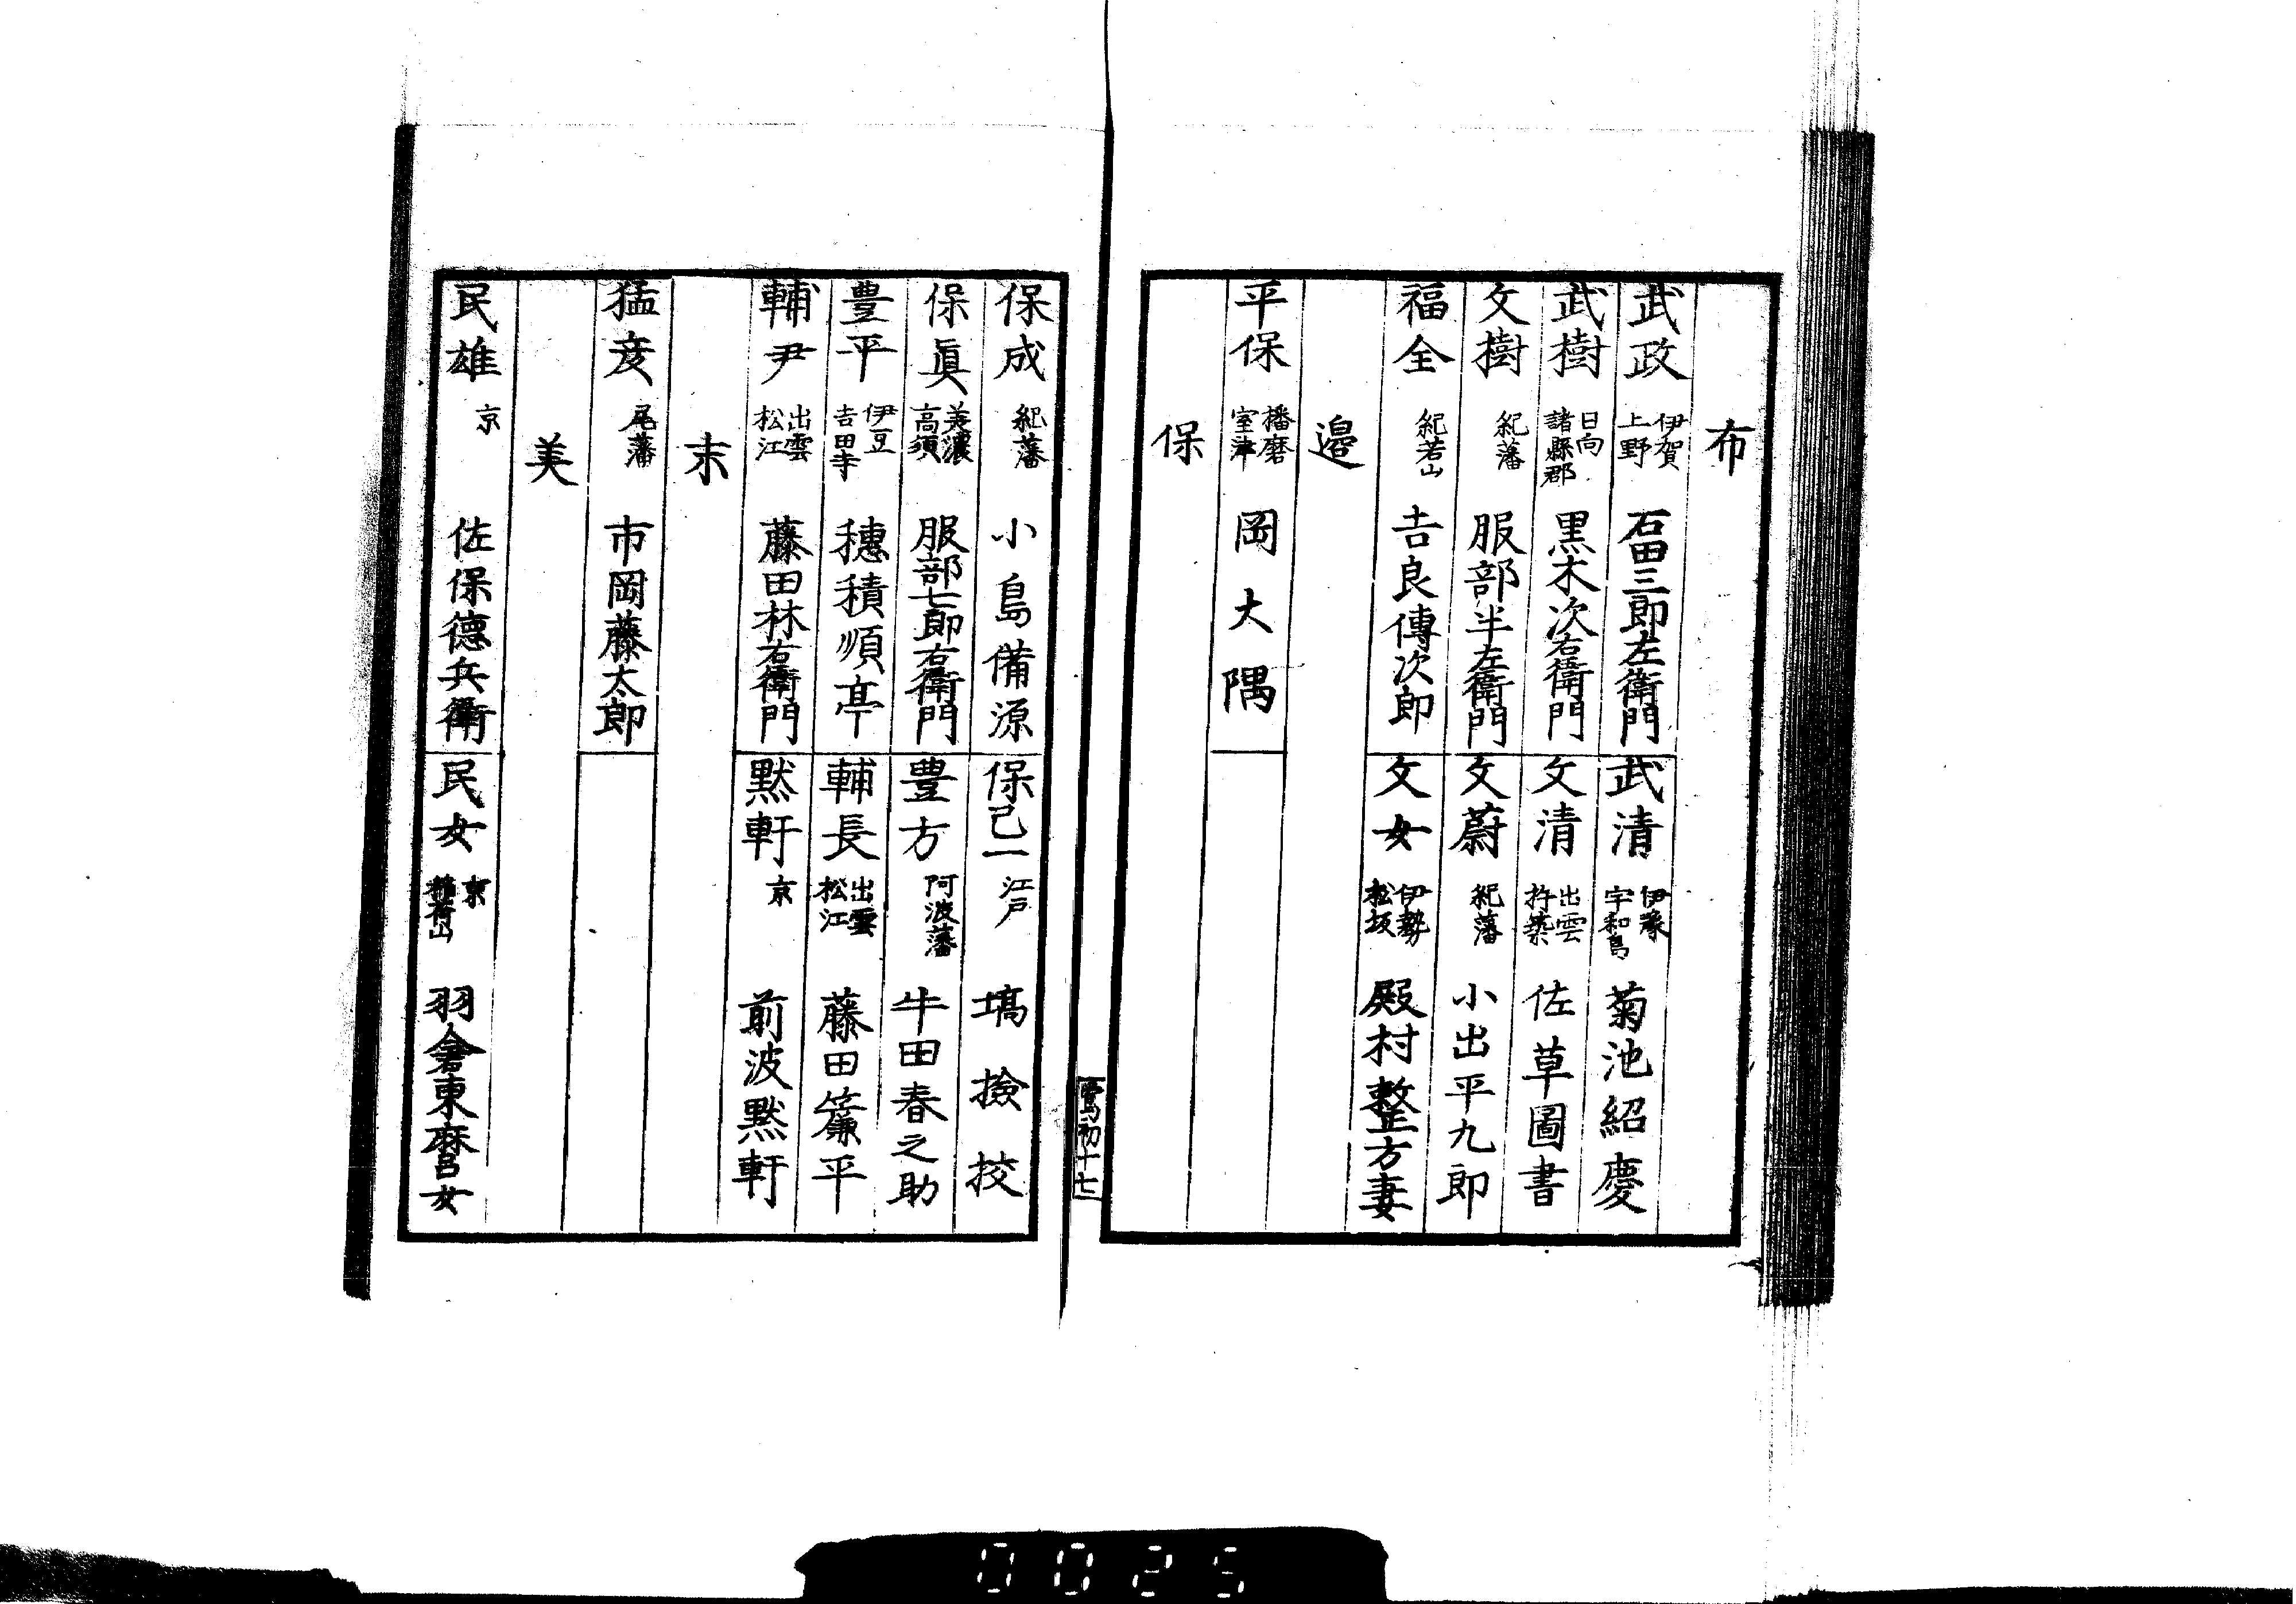 布
武政 伊賀上野 石田三郎左衛門
武清 伊豫宇和島 菊池紹慶
武樹 日向諸縣郡 黒木次右衛門
文清 出雲杵築 佐草圖書
文樹 紀藩 服部半左衛門
文蔚 紀藩 小出平九郎
福全 紀若山 吉良傳次郎
文女 伊勢松坂 殿村整方妻
邉
平保 播磨室津 岡大隅
保
鶯初 十七
保成 紀藩 小島備源
保己一 江戸 塙撿挍
保眞 美濃高須 服部七郎右衛門
豊方 阿波藩 牛田春之助
豊平 伊豆吉田寺 穂積順亭
輔長 出雲松江 藤田簾平
輔尹 出雲松江 藤田林右衛門
黙軒 京 前波黙軒
末
猛彦 尾藩 市岡藤太郎
美
民雄 京 佐保德兵衛
民女 京稲荷山 羽倉東麿女
0025